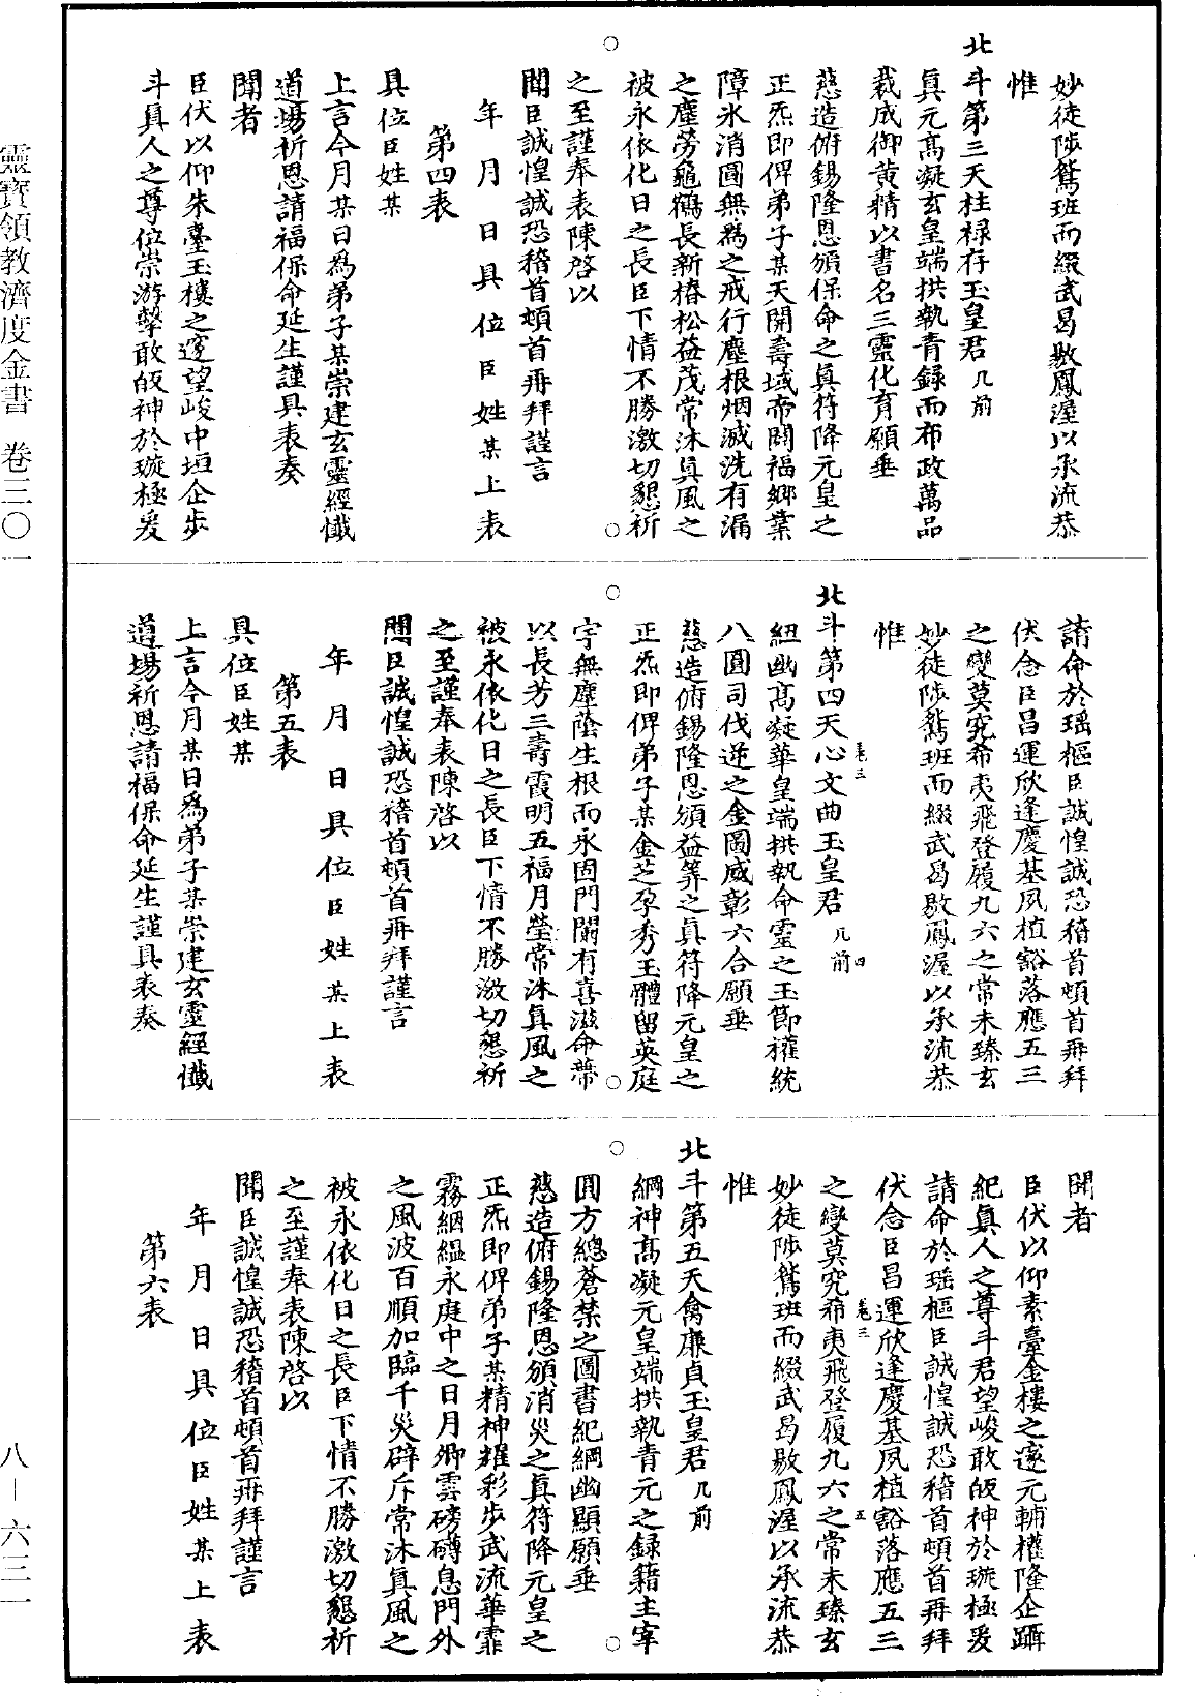 靈寶領教濟度金書　卷三〇一
八—六三一
妙徒陟鵉班而綴武曷敭鳳渥以承流恭
惟
北斗第三天柱祿存玉皇君几前
眞元高凝玄皇端拱執青録而布政萬品
裁成御黃精以書名三靈化育願垂
慈造俯錫隆恩頒保命之眞符降元皇之
正炁即俾弟子某天開壽域帝闢福鄉業
障氷消圓無爲之戒行塵根烟滅洗有漏
之塵勞龜鶴長新椿松益茂常沐眞風之
被永依化日之長臣下情不勝激切懇祈
之至謹奉表陳啓以
聞臣誠惶誠恐稽首頓首再拜謹言
年月日具位臣姓某上表
第四表
具位臣姓某
上言今月某日爲弟子某崇建玄靈經懺
道場祈恩請福保命延生謹具表奏
聞者
臣伏以仰朱臺玉樓之邃望峻中垣企步
斗眞人之尊位崇游擊敢皈神於璇極爰
請命於瑶樞臣誠惶誠恐稽首頓首再拜
伏念臣昌運欣逢慶基夙植豁落應五三
之變莫究希夷飛登履九六之常未臻玄
妙徒陟鵉班而綴武曷敭鳳渥以承流恭
惟
卷三　四
北斗第四天心文曲玉皇君几前
紐幽高凝華皇端拱執命靈之玉節權統
八圓司伐逆之金圖威彰六合願垂
慈造俯錫隆恩頒益筭之眞符降元皇之
正炁即俾弟子某金芝孕秀玉體留英庭
宇無塵蔭生根而永固門闌有喜滋命蔕
以長芳三壽霞明五福月瑩常沐眞風之
被永依化日之長臣下情不勝激切懇祈
之至謹奉表陳啓以
聞臣誠惶誠恐稽首頓首再拜謹言
年月日具位臣姓某上表
第五表
具位臣姓某
上言今月某日爲弟子某崇建玄靈經懺
道場祈恩請福保命延生謹具表奏
聞者
臣伏以仰素臺金樓之邃元輔權隆企躡
紀眞人之尊斗君望峻敢皈神於璇極爰
請命於瑶樞臣誠惶誠恐稽首頓首再拜
伏念臣昌運欣逢慶基夙植豁落應五三
卷三　五
之變莫究希夷飛登履九六之常未臻玄
妙徒陟鵉班而綴武曷敭鳳渥以承流恭
惟
北斗第五天禽廉貞玉皇君几前
綱神高凝元皇端拱執青元之録籍主宰
圓方總蒼禁之圖書紀綱幽顯願垂
慈造俯錫隆恩頒消災之眞符降元皇之
正炁即俾弟子某精神耀彩步武流華霏
霧絪緼永庭中之日月卿雲磅礡息門外
之風波百順加臨千災辟斥常沐眞風之
被永依化日之長臣下情不勝激切懇祈
之至謹奉表陳啓以
聞臣誠惶誠恐稽首頓首再拜謹言
年月日具位臣姓某上表
第六表